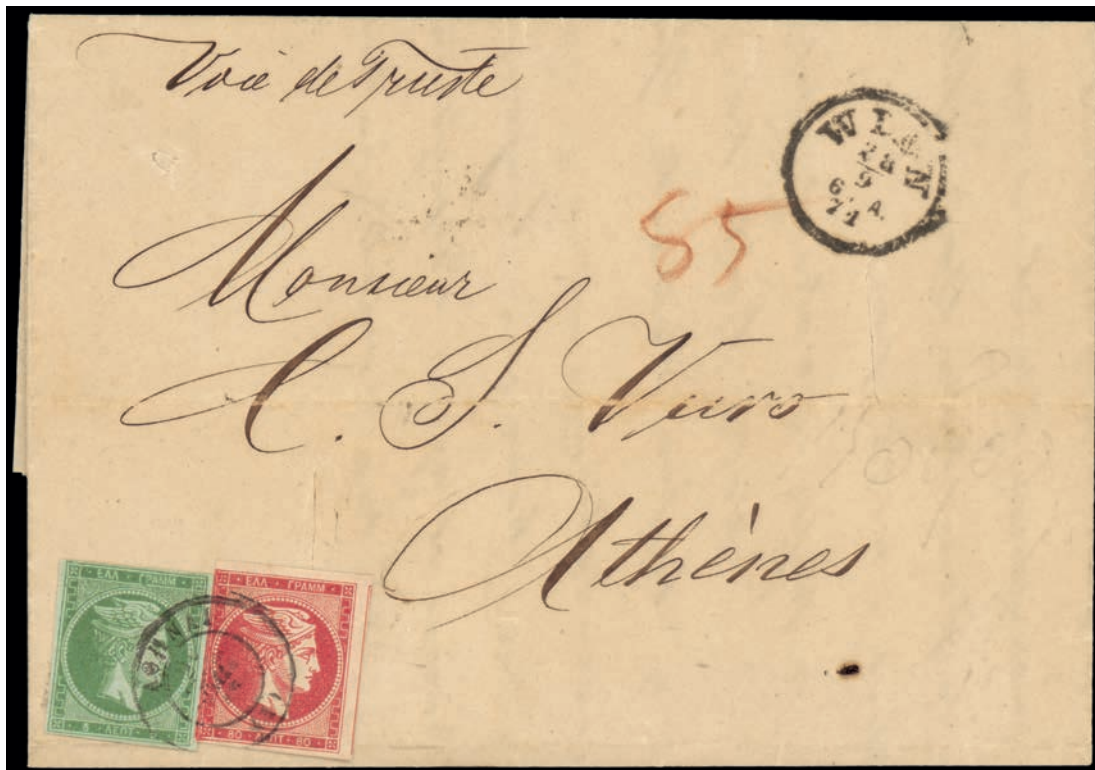 Voie de Trieste
WIEN
28
9
6 A.
71
85
Monsieur
C. S. Vuro
Athènes
ΕΛΛ ΓΡΑΜΜ
5 ΛΕΠΤ 5
ΕΛΛ ΓΡΑΜΜ
80 ΛΕΠΤ 80